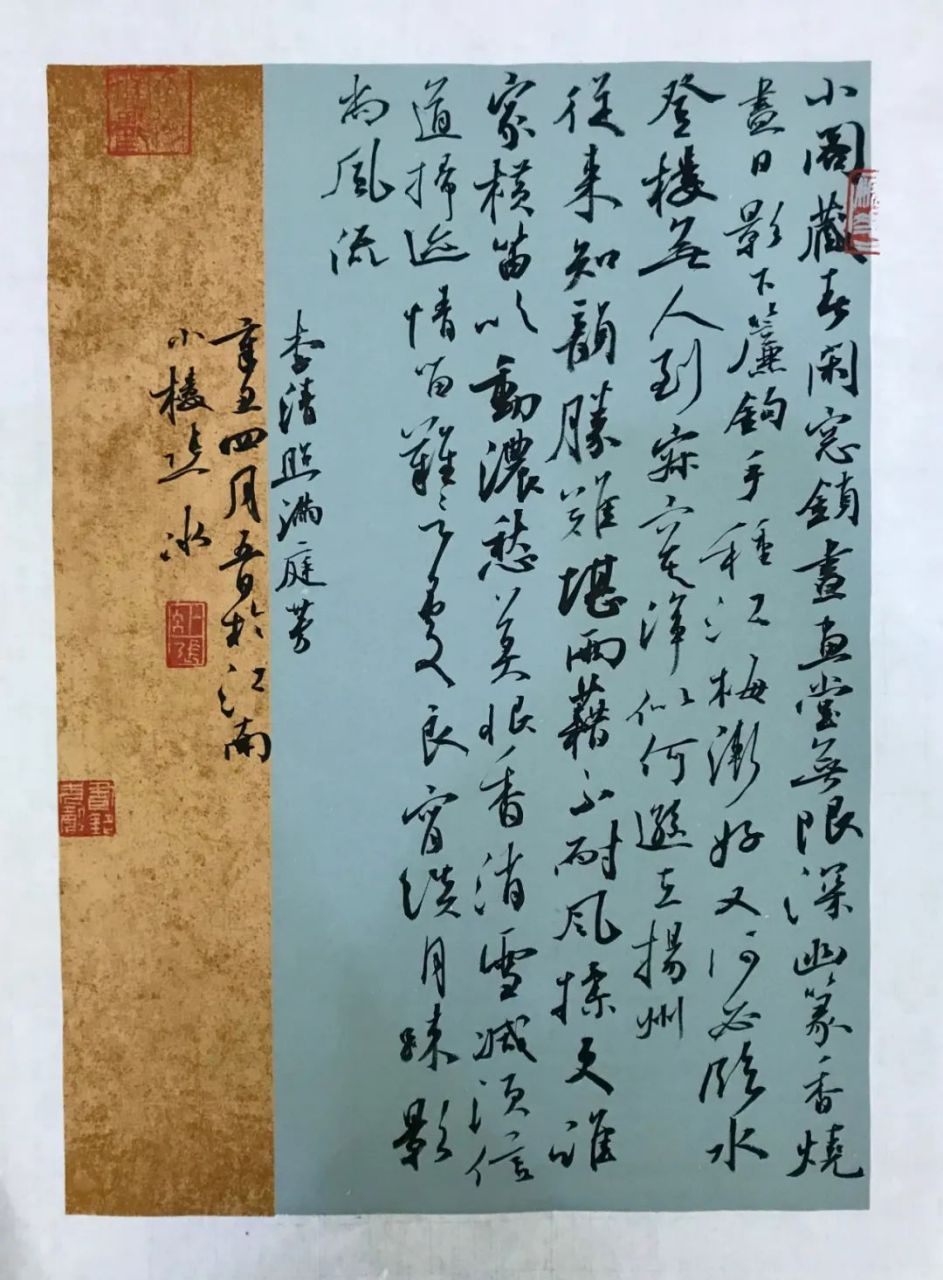 小閣藏春閑窓鎖晝畫堂無限深幽篆香燒
盡日影下簾鉤手種江梅漸好又何必臨水
登樓無人到寂寥渾似何遜在揚州
從來知韻勝難堪雨藉不耐風揉更誰
家橫笛吹動濃愁莫恨香消雪減須信
道掃迹情留難言處良宵淡月疎影
尚風流
李清照滿庭芳
辛丑四月五日於江南
小樓